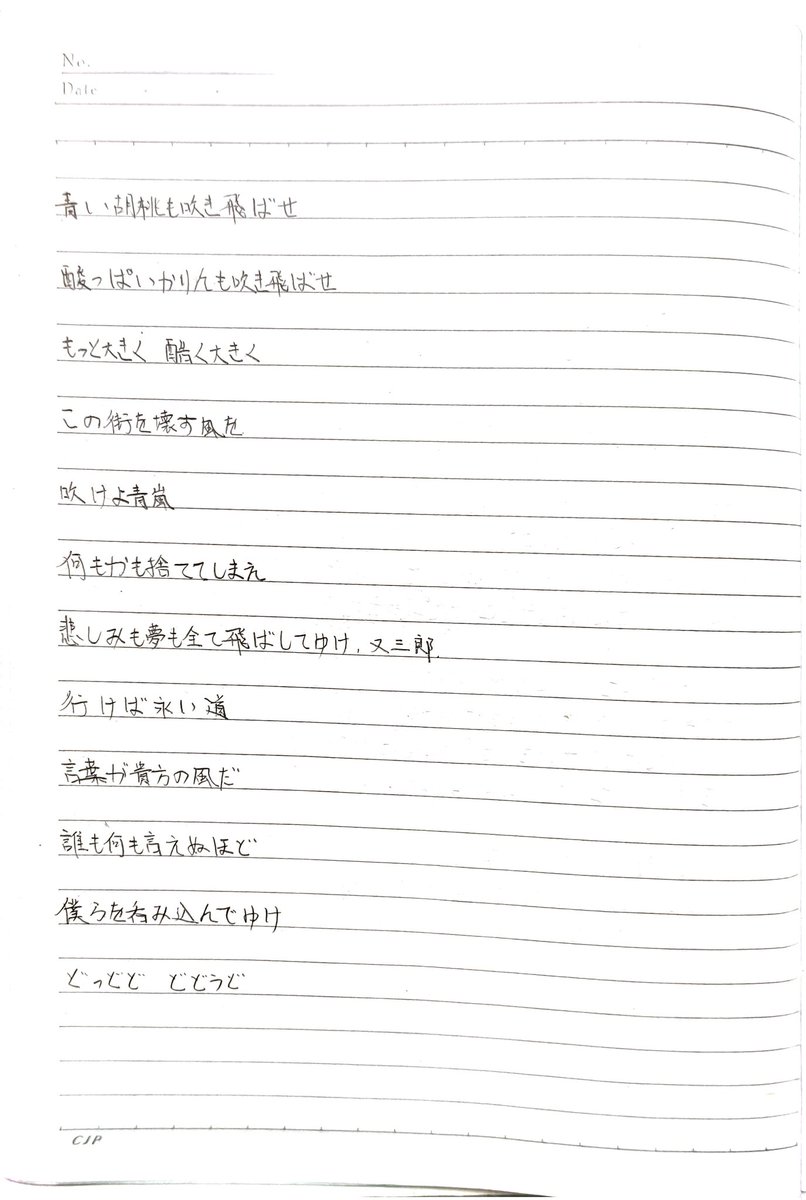 No.
Date
青い胡桃も吹き飛ばせ
酸っぱいかりんも吹き飛ばせ
もっと大きく 酷く大きく
この街を壊す風を
吹けよ青嵐
何もかも捨ててしまえ
悲しみも夢も全て飛ばしてゆけ、又三郎
行けば永い道
言葉が貴方の風だ
誰も何も言えぬほど
僕らを呑み込んでゆけ
どっどど どどうど
CJP